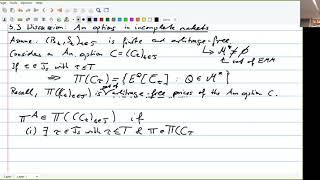 5.3 Discussion: Am. option in incomplete markets
Assume: (B_t, S_t)_{t∈J} is finite and arbitrage-free.
↳ M^e ≠ ∅
Consider a Am. option C = (C_t)_{t∈J}
set of EMM
If τ ∈ J, with τ ≤ T
⇒ Π(C_τ) = { E^Q[C̃_τ] : Q ∈ M^e }
Recall, Π((C_t)_{t∈J}) is arbitrage-free prices of the Am option C.
set of
π^A ∈ Π((C_t)_{t∈J}) if
(i) ∃ τ ∈ J, with τ ≤ T & π ∈ Π(C_τ